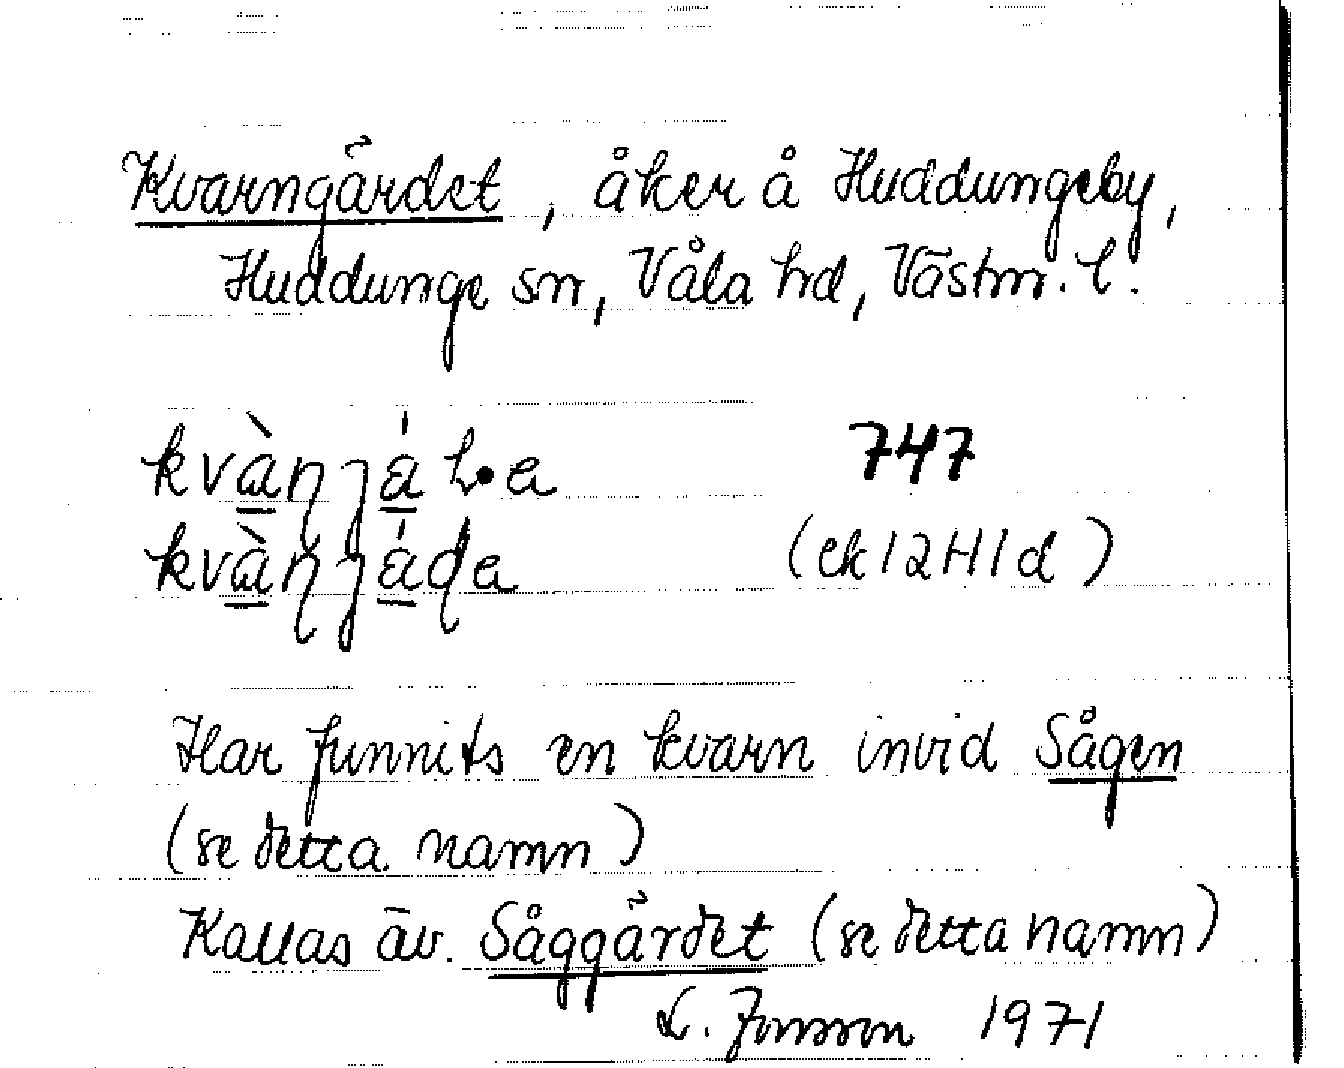 Kvarngärdet, åker å Huddungeby,
Huddunge sn, Våla hd, Västm. l.
747
(ek 12H1d)
Har funnits en kvarn invid Sågen
(se detta namn)
Kallas äv. Såggärdet (se detta namn)
L. Jonsson 1971